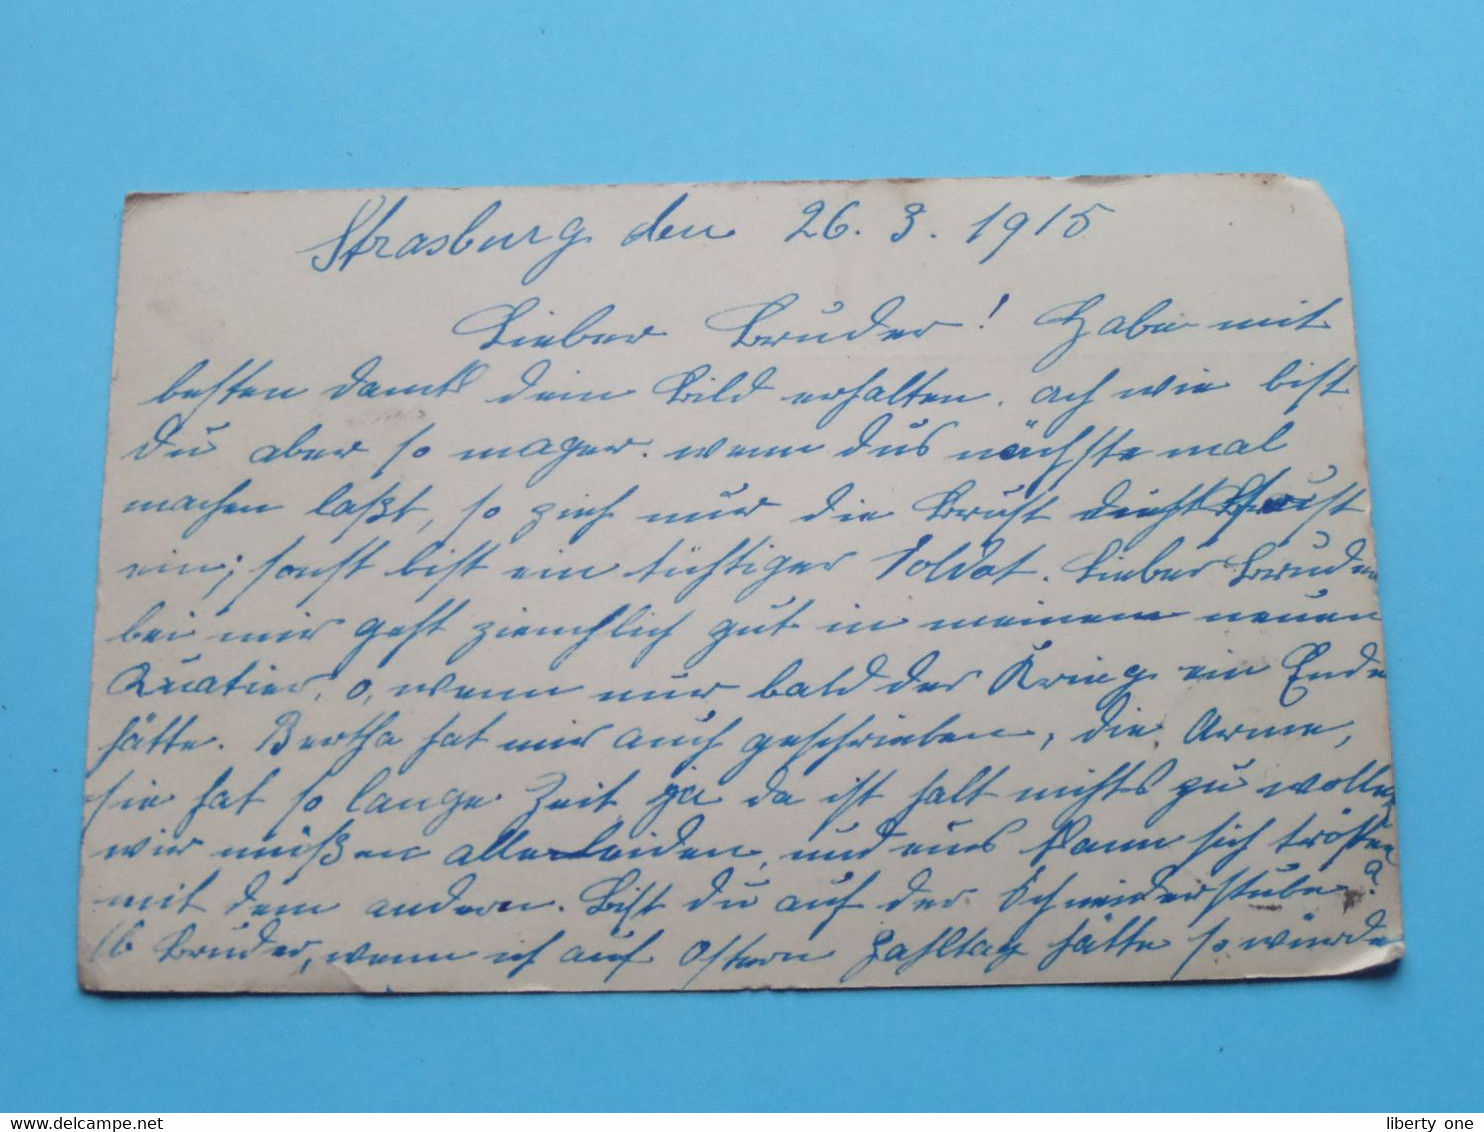 Strasburg den 26. 3. 1915
Lieber Bruder! Habe mit
besten Dank dein Bild erhalten. ach wie bist
du aber so mager. wenn dus nächste mal
machen laßt, so zieh nur die Brust
ein; sonst bist ein tüchtiger Soldat. Lieber Bruder
bei mir geht ziemlich gut in meinem neuen
Quatier, o, wenn nur bald der Krieg ein Ende
hätte. Bertha hat mir auch geschrieben, die Arme,
sie hat so lange Zeit ja da ist halt nichts zu wollen
wir müßen alle Leiden, und eins kann sich trösten
mit dem andern. Bist du auf der Schneiderstube?
lb Bruder, wenn ich auf Ostern Zahltag hätte so würde
liberty one